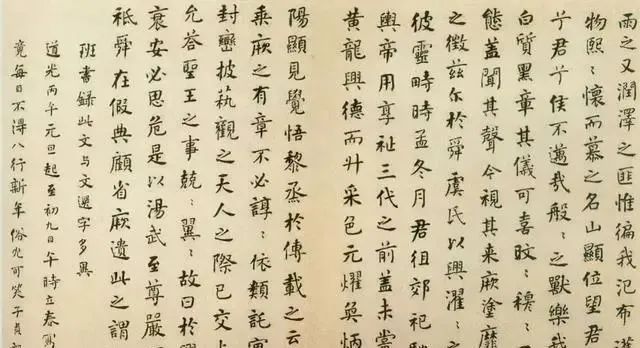 雨之又潤澤之匪惟徧我氾布濩
物熙〻懷而慕之名山顯位望君
兮君兮侯不邁哉般〻之獸樂我
白質黑章其儀可喜旼〻穆〻
態蓋聞其聲今視其来厥塗靡
之徵兹尔於舜虞民以興濯〻之
彼靈畤時孟冬月君徂郊祀馳
輿帝用享祉三代之前蓋未嘗
黄龍興德而升采色元燿奐炳
陽顯見覺悟黎丞於傳載之云
乘厥之有章不必諄〻依類託寓
封巒披蓺觀之天人之際已交上
允荅聖王之事兢〻翼〻故曰於興
衰安必思危是以湯武至尊嚴
祗舜在假典顧省厥遺此之謂
班書録此文与文選字多異
道光丙午元旦起至初九日午時立春寫
竟每日不得八行新年俗冗可笑子貞